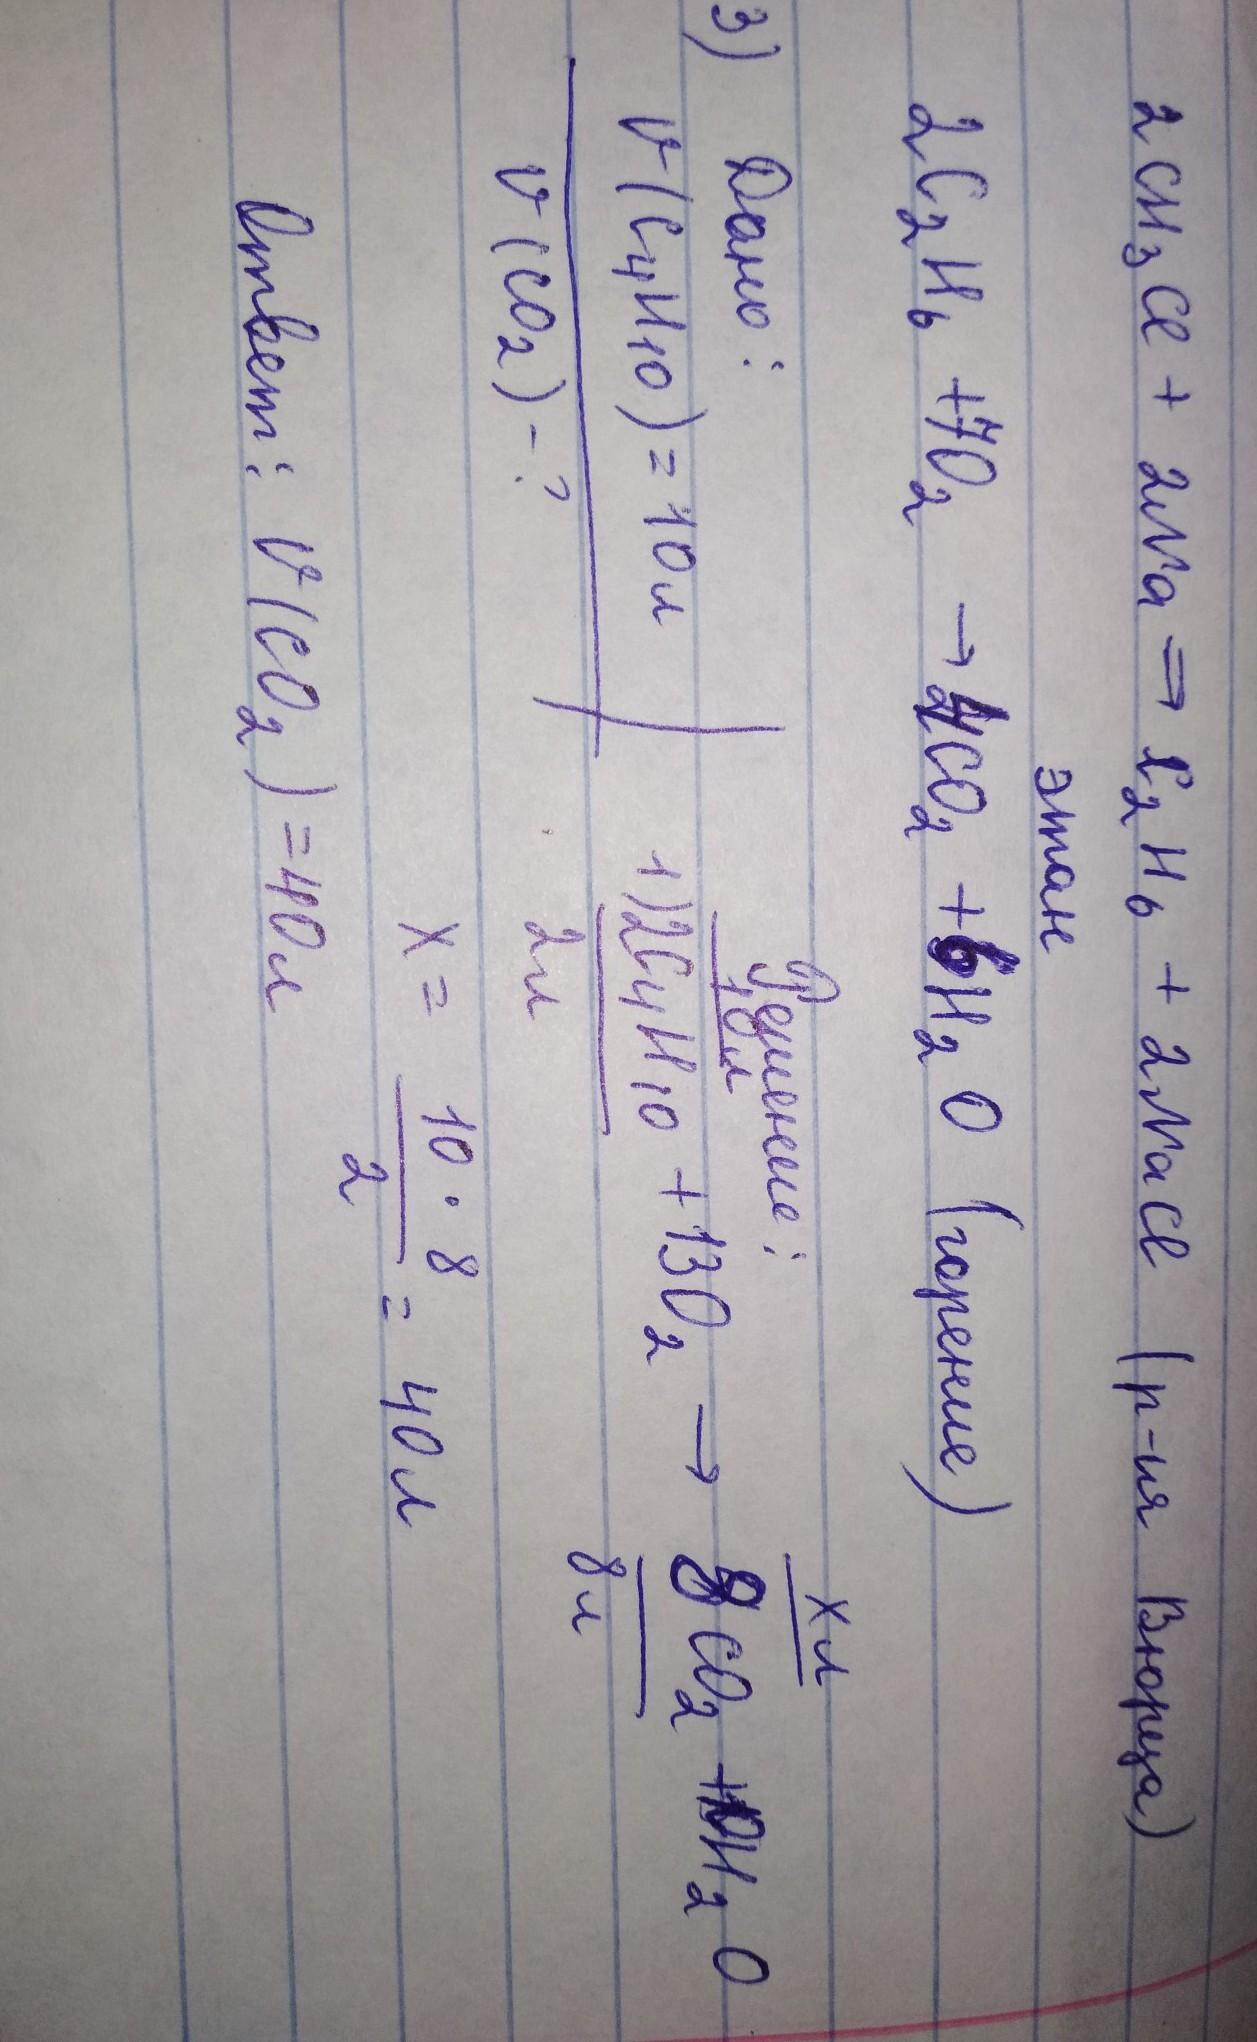 2CH₃Cl + 2Na ⇒ C₂H₆ + 2NaCl (р-ия Вюрца)
этан
2C₂H₆ + 7O₂ → 4CO₂ + 6H₂O (горение)
3) Дано:
V(C₄H₁₀) = 10л
V(CO₂) - ?
Решение:
10л xл
1) 2C₄H₁₀ + 13O₂ → 8CO₂ + 10H₂O
2л 8л
x = 10 · 8 / 2 = 40л
Ответ: V(CO₂) = 40л